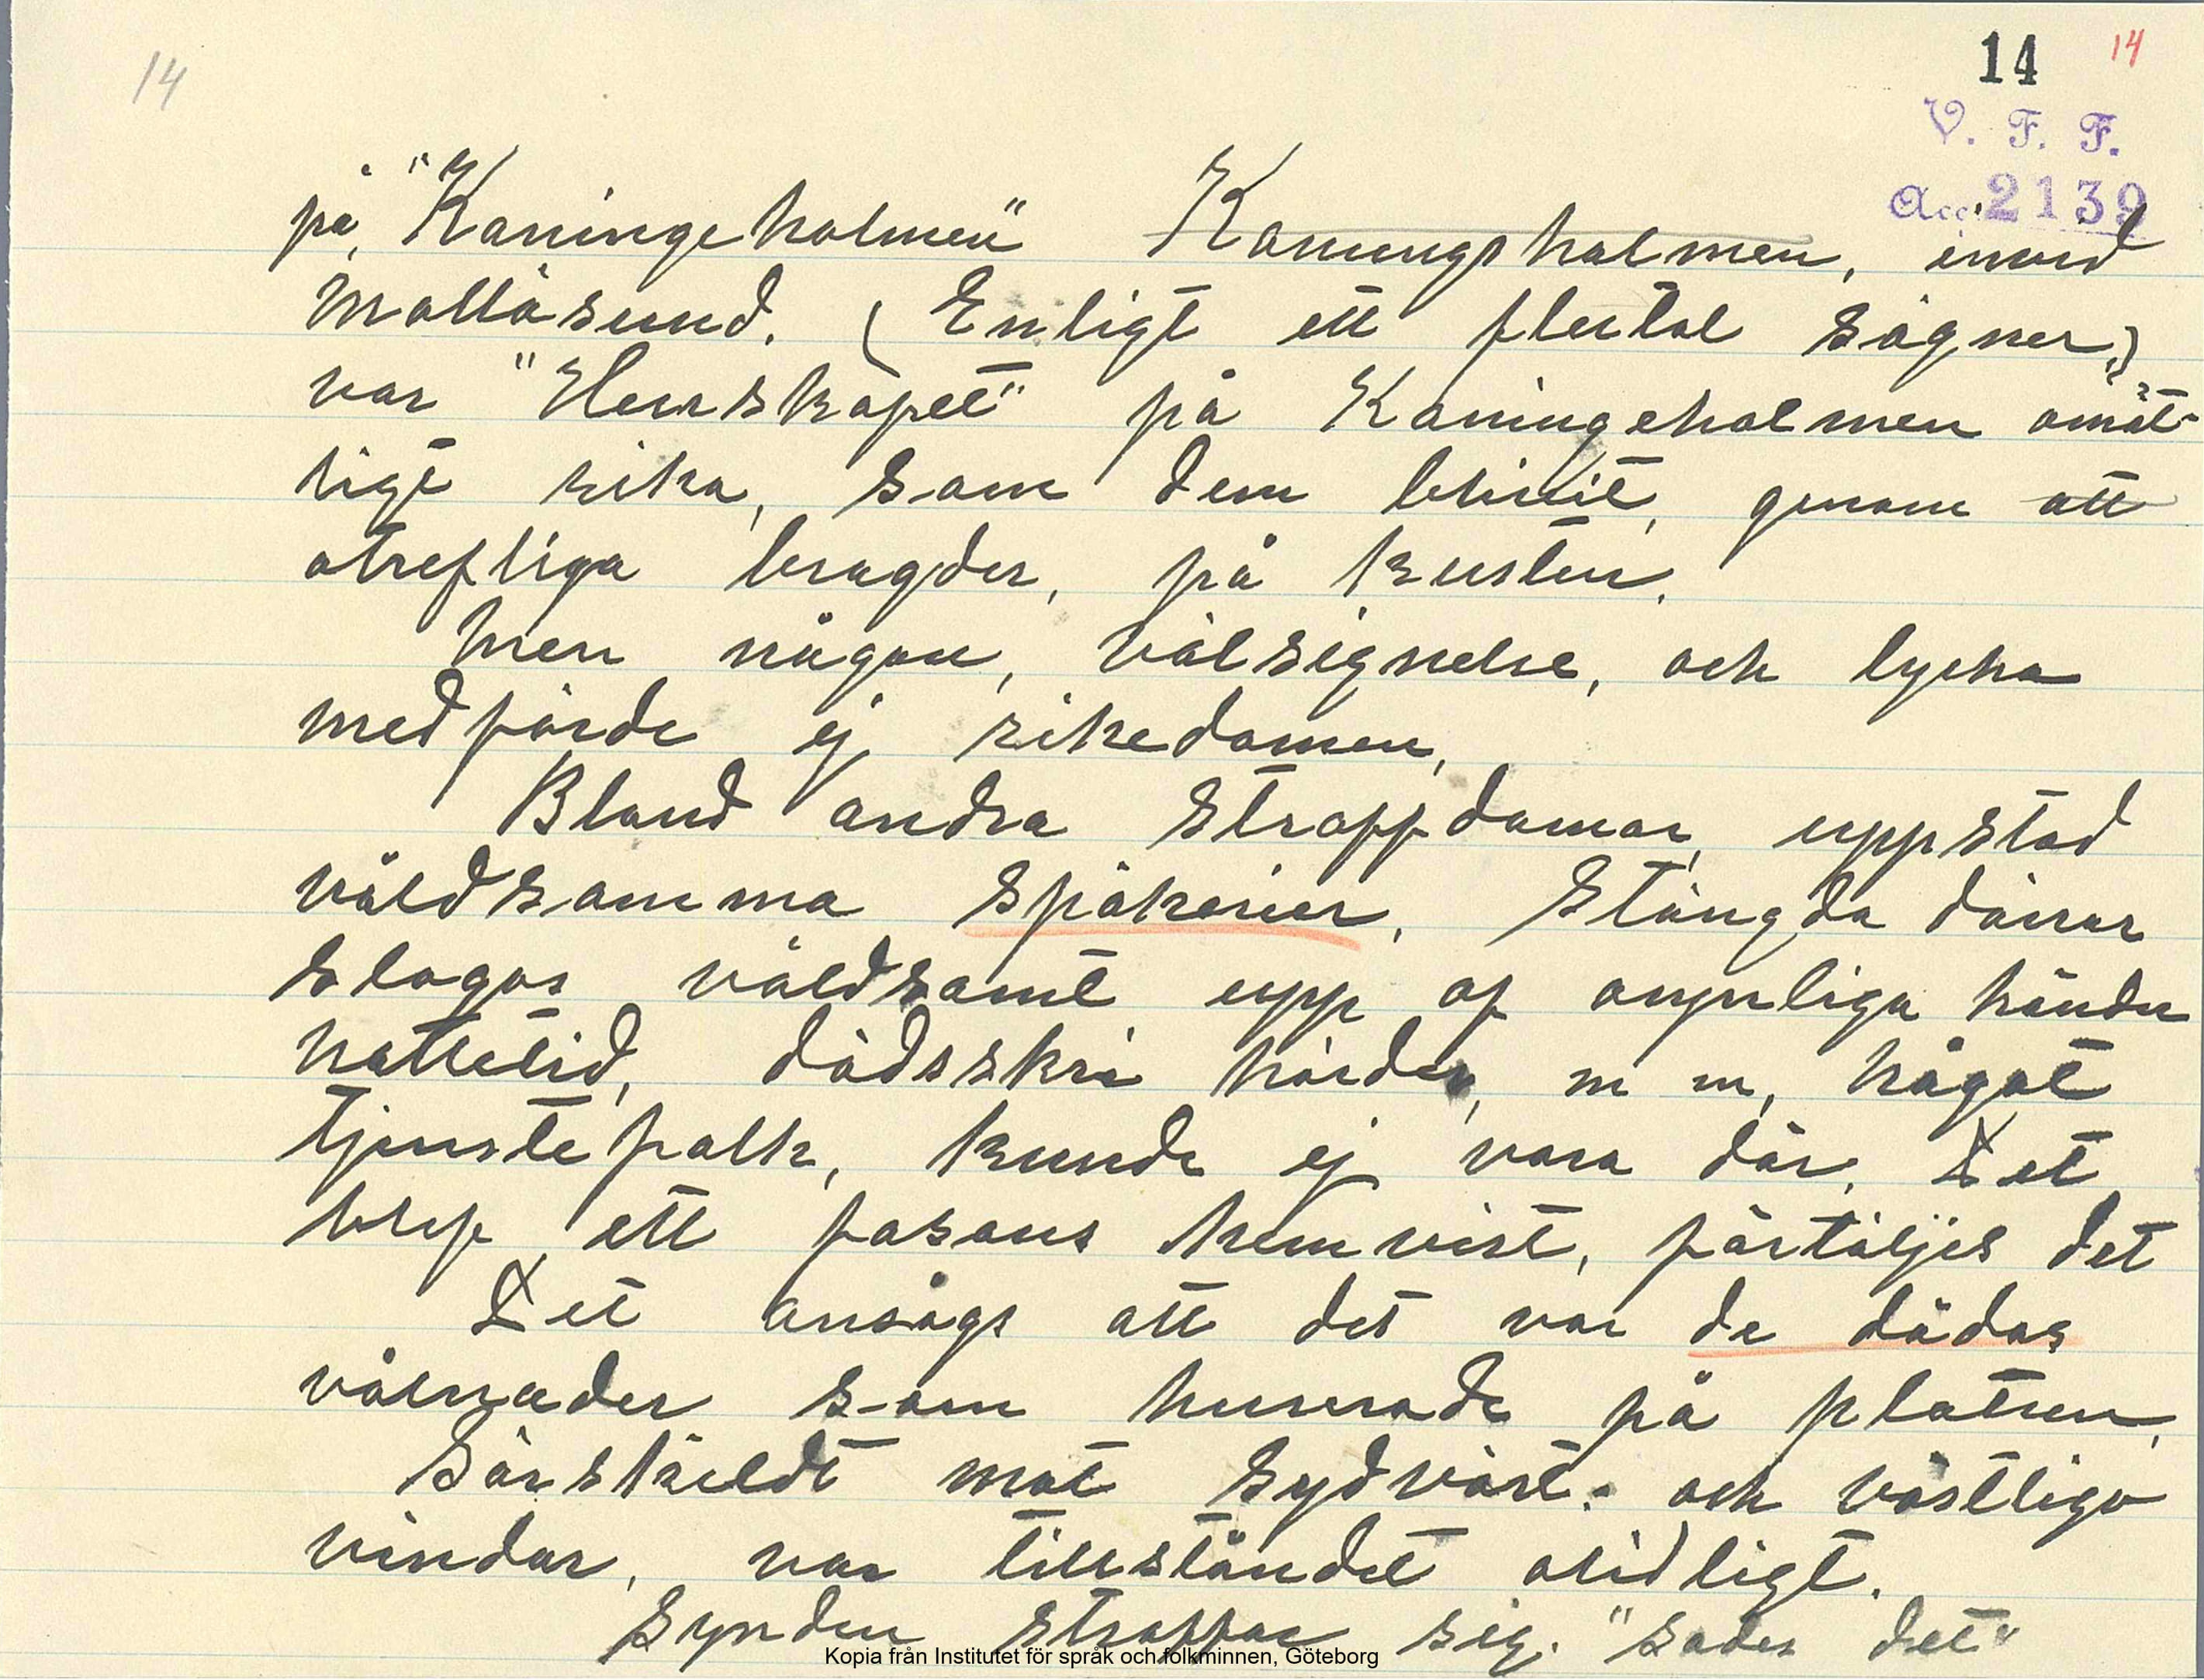 14
14 14
V. F. F.
Acc. 2139
på, "Kaningeholmen" Kaningsholmen, invid
Mollösund. (Enligt ett flertal sägner,)
var "Herrskapet" på Kaningeholmen omåt-
ligt rika, som dem blivit, genom att
otrefliga bragder, på kusten.
Men någon, välsignelse, och lycka
medförde ej rikedomen,
Bland andra straffdomar, uppstod
våldsamma spökerier, Stängda dörrar
slogos våldsamt upp af osynliga händer
nattetid, dödsskri hördes, m m, något
tjenstefolk, kunde ej vara där, Det
blef ett fasans hemvist, förtäljes det
Det ansågs att det var de dödas
vålnader som huserade på platsen,
Särskieldt mot sydväst. och västliga
vindar, var tillståndet olidligt.
Synden straffar sig. "sades det"
Kopia från Institutet för språk och folkminnen, Göteborg